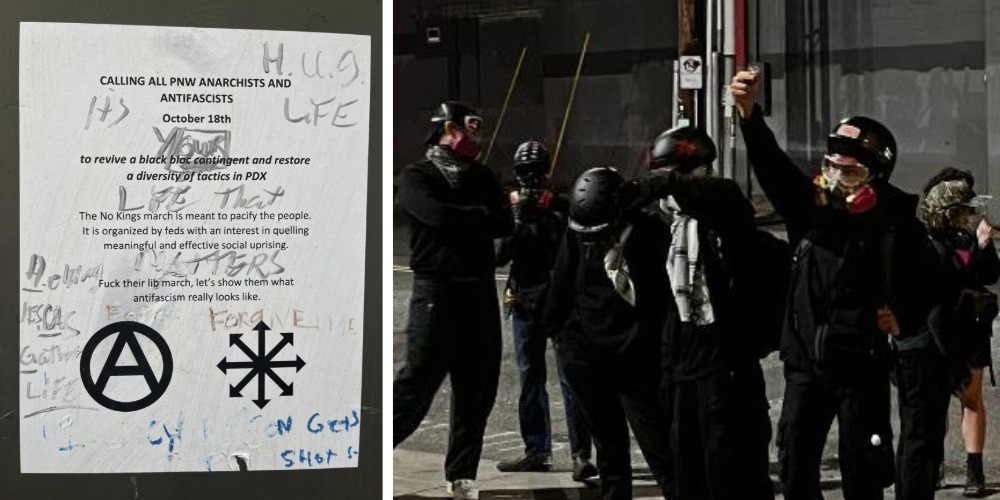 H.U.G.
CALLING ALL PNW ANARCHISTS AND
ANTIFASCISTS
LiFE
October 18th
YOUR
to revive a black bloc contingent and restore
a diversity of tactics in PDX
LiFE That
The No Kings march is meant to pacify the people.
It is organized by feds with an interest in quelling
meaningful and effective social uprising.
MATTERS
Fuck their lib march, let's show them what
antifascism really looks like.
FORGIVE ME
LiFE
N Gets
SHot